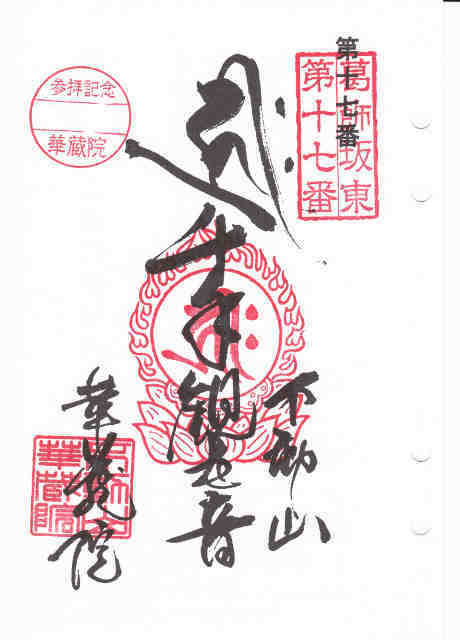 第十七番
葛飾坂東
第十七番
千手観世音
不動山
華蔵院
参拝記念
華蔵院
不動山
華蔵院